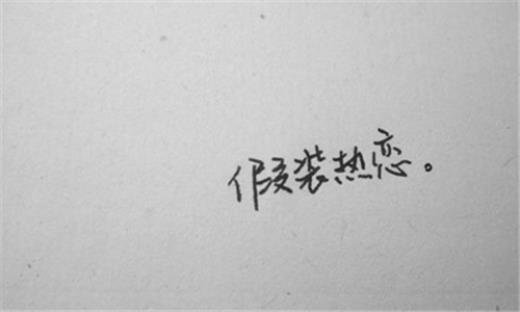 假装热恋。